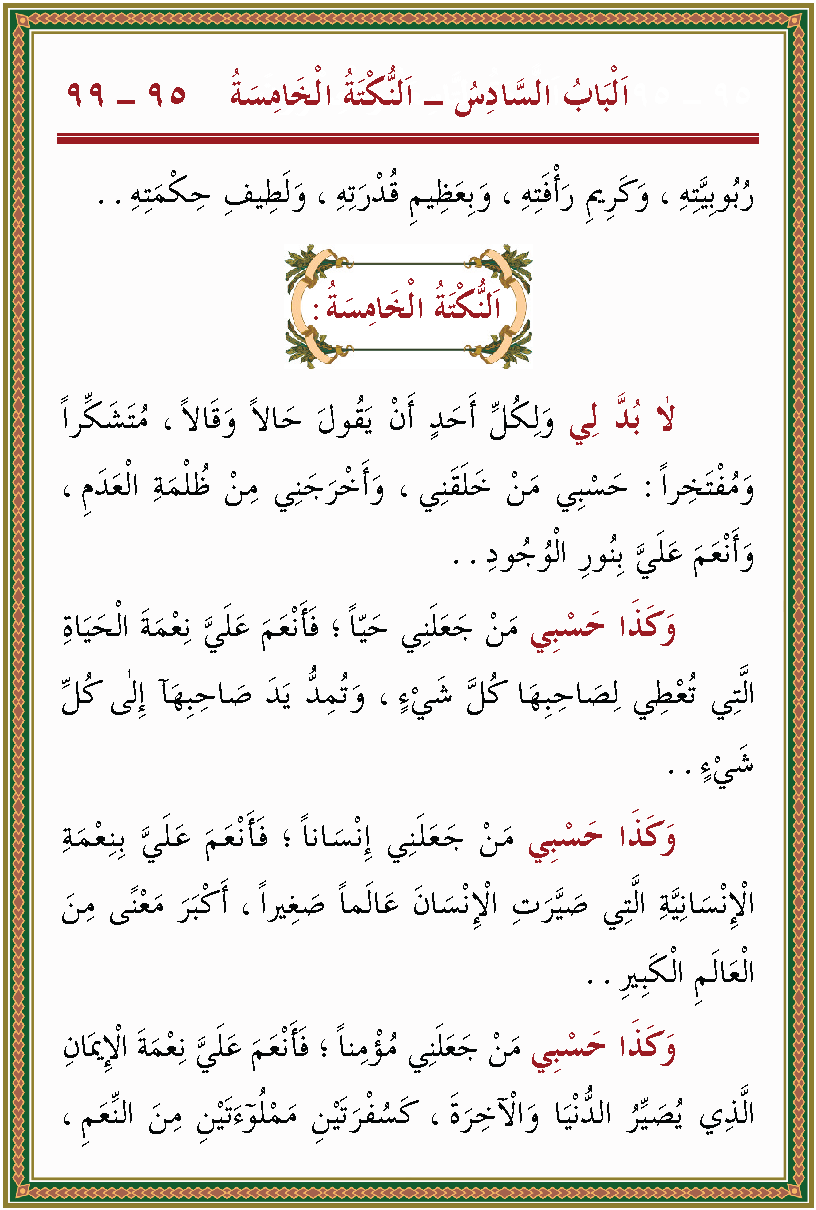 اَلْبَابُ السَّادِسُ – اَلنُّكْتَةُ الْخَامِسَةُ ٩٥ – ٩٩
رُبُوبِيَّتِهِ ، وَكَرِيمِ رَأْفَتِهِ ، وَبِعَظِيمِ قُدْرَتِهِ ، وَلَطِيفِ حِكْمَتِهِ . .
اَلنُّكْتَةُ الْخَامِسَةُ :
لٰا بُدَّ لِي وَلِكُلِّ أَحَدٍ أَنْ يَقُولَ حَالاً وَقَالاً ، مُتَشَكِّراً
وَمُفْتَخِراً : حَسْبِي مَنْ خَلَقَنِي ، وَأَخْرَجَنِي مِنْ ظُلْمَةِ الْعَدَمِ ،
وَأَنْعَمَ عَلَيَّ بِنُورِ الْوُجُودِ . .
وَكَذَا حَسْبِي مَنْ جَعَلَنِي حَيّاً ؛ فَأَنْعَمَ عَلَيَّ نِعْمَةَ الْحَيَاةِ
الَّتِي تُعْطِي لِصَاحِبِهَا كُلَّ شَيْءٍ ، وَتُمِدُّ يَدَ صَاحِبِهَآ إِلٰى كُلِّ
شَيْءٍ . .
وَكَذَا حَسْبِي مَنْ جَعَلَنِي إِنْسَاناً ؛ فَأَنْعَمَ عَلَيَّ بِنِعْمَةِ
الْإِنْسَانِيَّةِ الَّتِي صَيَّرَتِ الْإِنْسَانَ عَالَماً صَغِيراً ، أَكْبَرَ مَعْنًى مِنَ
الْعَالَمِ الْكَبِيرِ . .
وَكَذَا حَسْبِي مَنْ جَعَلَنِي مُؤْمِناً ؛ فَأَنْعَمَ عَلَيَّ نِعْمَةَ الْإِيمَانِ
الَّذِي يُصَيِّرُ الدُّنْيَا وَالْآخِرَةَ ، كَسُفْرَتَيْنِ مَمْلُوٓءَتَيْنِ مِنَ النِّعَمِ ،